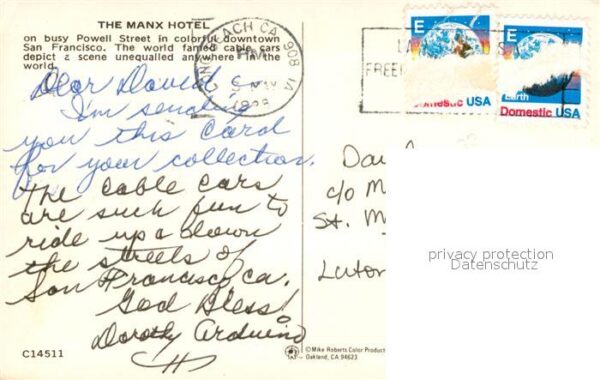 THE MANX HOTEL
on busy Powell Street in colorful downtown
San Francisco. The world famed cable cars
depict a scene unequalled anywhere in the
world.
Dear David
I'm sending
you this card
for your collection.
The cable cars
are such fun to
ride up & down
the streets of
San Francisco ca.
God Bless!
Dorothy Arduino
C14511
LONG BEACH CA 908
PM
E
Domestic USA
E
Earth
Domestic USA
c/o M
St. M
Luton
privacy protection
Datenschutz
©Mike Roberts Color Product
Oakland, CA 94623